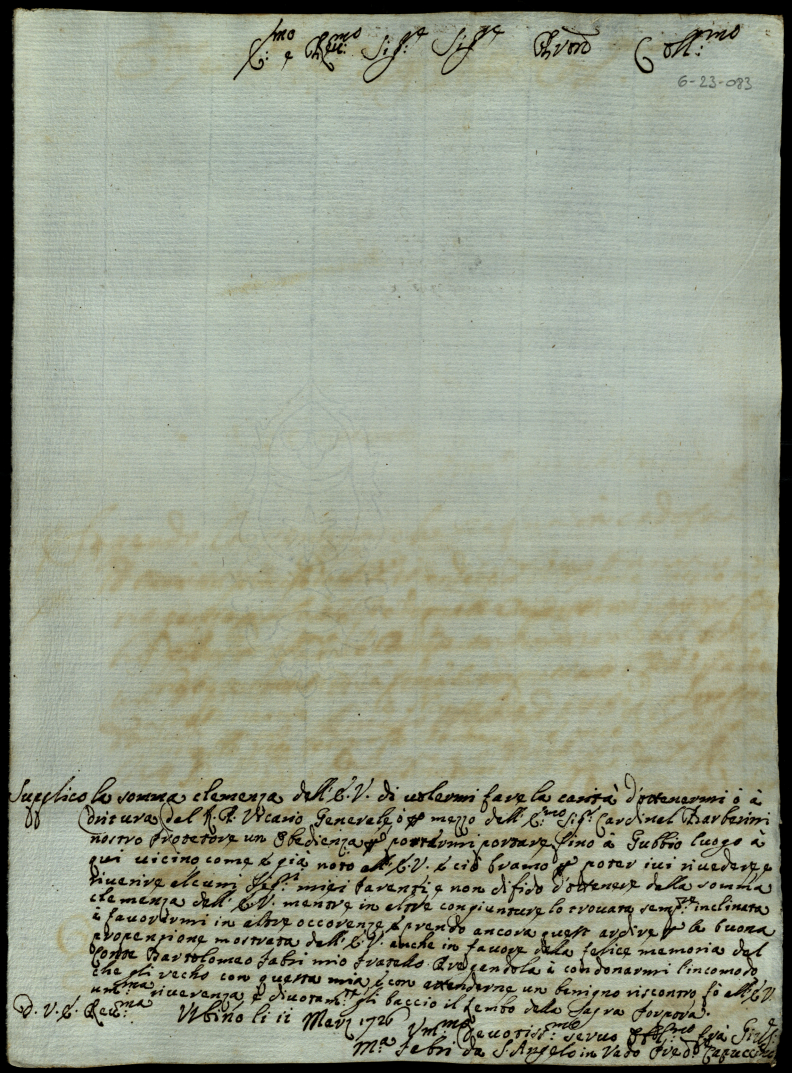 E:mo e Reu:mo Sig:re Sig:re Pron Coll:mo
6-23-083
Supplico la somma clemenza dell'E.V. di uolermi fare la carità d'ottenermi ò à
dritura dal R.P. Vicario Generale ò p mezzo dell'E:mo Sig:r Cardinal Barberini
nostro Protetore un Obedienza p portarmi fino à Gubbio luogo à
qui uicino come è già noto all'E.V. e ciò bramo p poter iui riuedere e
riuerire alcuni Sig:ri miei Parenti, e non difido d'ottenere dalla somma
clemenza dell'E.V. mentre in altre congienture lo trouata sempre inclinata
à fauorirmi in altre occorenze e prendo ancora quest ardire p la buona
propenzione mostrata dall'E.V. anche in fauore della felice memoria del
Conte Bartolomeo Fabri mio Fratello Pregandola à condonarmi l'incomodo
che gli recho con questa mia, e con attenderne un benigno riscontro fò all'E.V.
um:ma riuerenza e diuotam:te gli baccio il lembo della Sagra Porpora.
D. V. E. Reu:ma Vrbino li 11 Marzo 1726
Vm:mo Deuotiss:mo seruo Fra
M:a Fabri da S. Angelo in Vado Capuccino